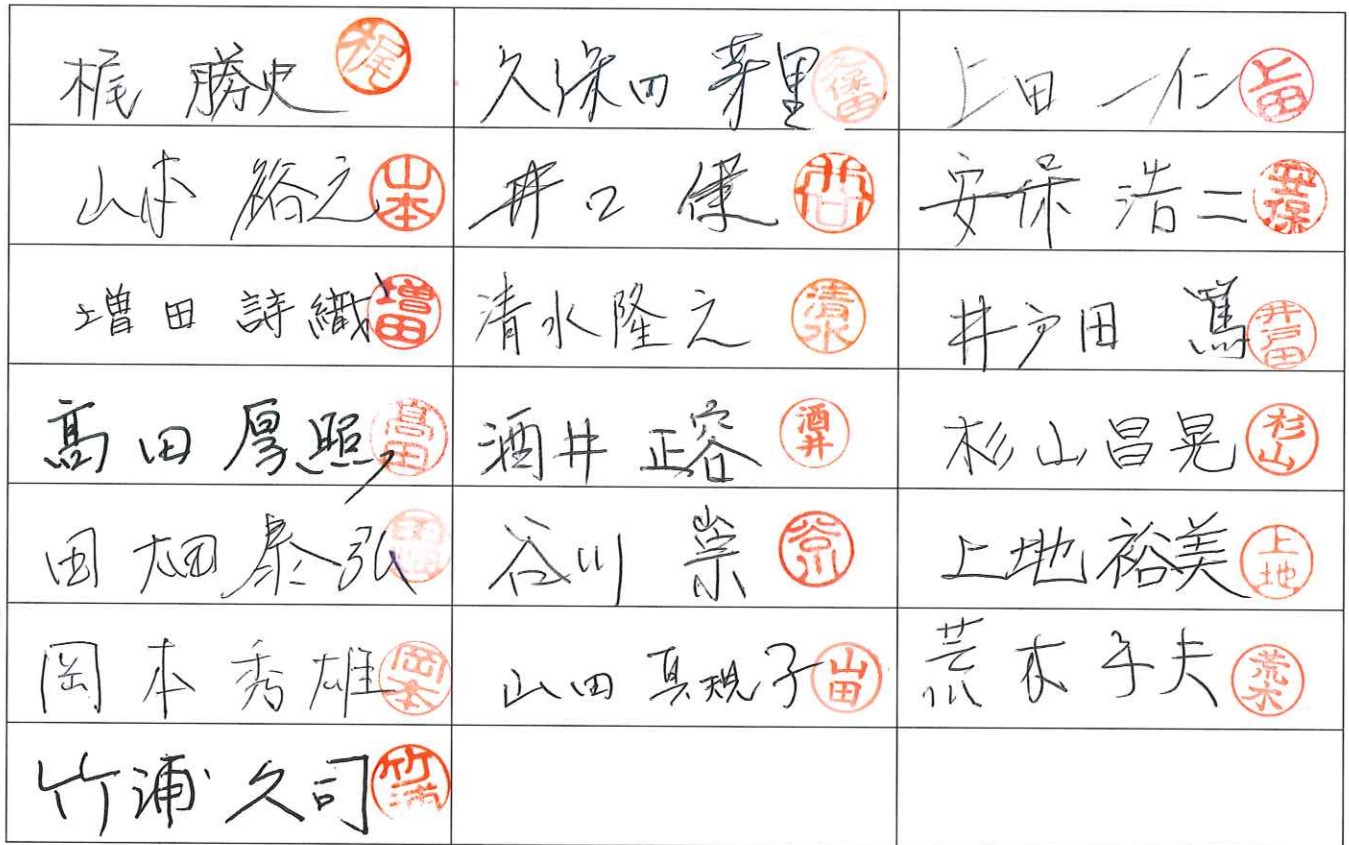 梶 勝史 梶 久保田 芽里 久保田 上田 一仁 上田
山本 裕之 山本 井口 健 井口 安保 浩二 安保
増田 詩織 増田 清水隆之 清水 井戸田 篤 井戸田
髙田 厚照 髙田 酒井 正容 酒井 杉山昌晃 杉山
田畑泰弘 田畑 谷川 崇 谷川 上地裕美 上地
岡本秀雄 岡本 山田 真規子 山田 荒木 夫 荒木
竹浦久司 竹浦